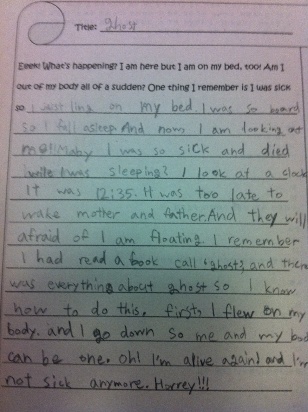 Title: ghost
Eeek! What's happening? I am here but I am on my bed, too! Am I
out of my body all of a sudden? One thing I remember is I was sick
so I just ling on my bed. I was so board
so I fall asleep. And now I am looking at
me!! Maby I was so sick and died
while I was sleeping? I look at a clock
It was 12:35. It was too late to
wake mother and father. And they will
afraid of I am floating. I remember
I had read a book call 'ghost' and there
was everything about ghost so I know
how to do this. first, I flew on my
body. and I go down so me and my bod
can be one. Oh! I'm alive again! and I'm
not sick anymore. Horrey!!!